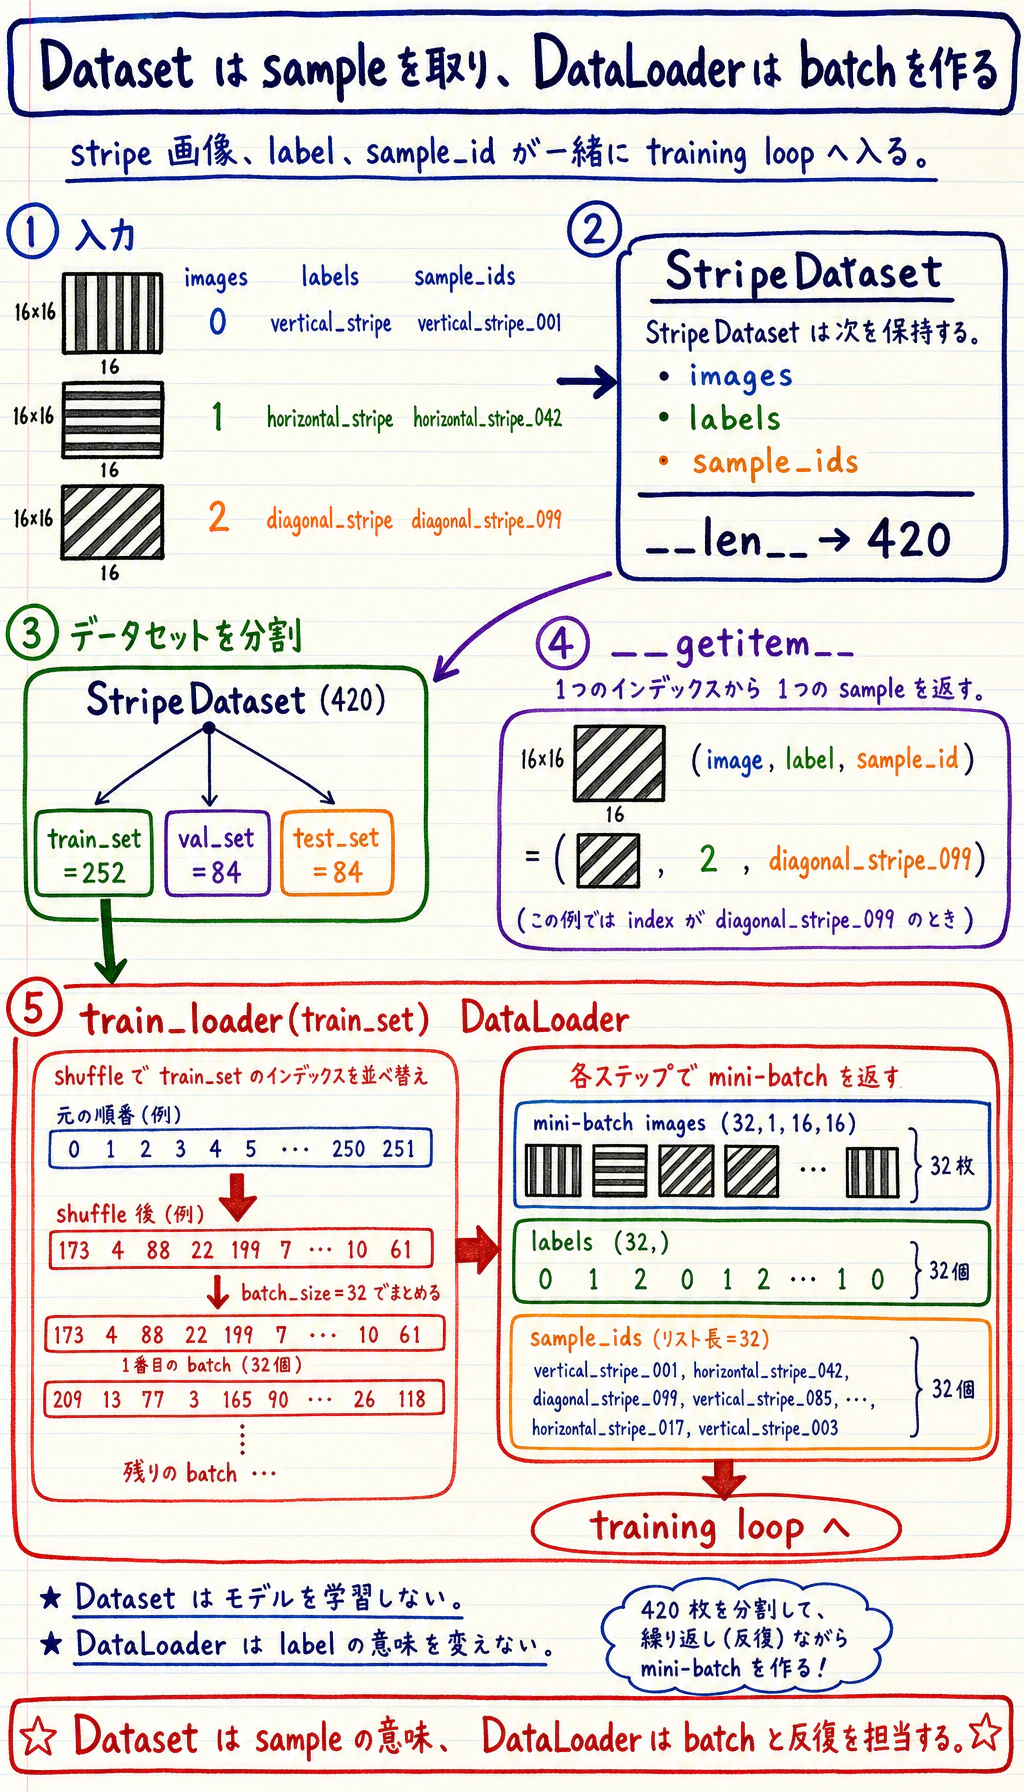 Dataset は sample を取り、DataLoader は batch を作る
stripe 画像、label、sample_id が一緒に training loop へ入る。
① 入力
images labels sample_ids
16×16 0 vertical_stripe vertical_stripe_001
16
16×16 1 horizontal_stripe horizontal_stripe_042
16
16×16 2 diagonal_stripe diagonal_stripe_099
16
②
StripeDataset
StripeDataset は次を保持する。
• images
• labels
• sample_ids
__len__ → 420
③ データセットを分割
StripeDataset (420)
train_set
=252
val_set
=84
test_set
=84
④ __getitem__
1つのインデックスから 1つの sample を返す。
16×16 (image, label, sample_id)
16
= ( , 2 , diagonal_stripe_099)
(この例では index が diagonal_stripe_099 のとき)
⑤ train_loader(train_set) DataLoader
shuffle で train_set のインデックスを並べ替え
元の順番(例)
0 1 2 3 4 5 ⋯ 250 251
shuffle 後(例)
173 4 88 22 199 7 ⋯ 10 61
batch_size=32 でまとめる
173 4 88 22 199 7 ⋯ 10 61
1番目の batch (32個)
209 13 77 3 165 90 ⋯ 26 118
⋮
残りの batch ⋯
各ステップで mini-batch を返す
mini-batch images (32,1,16,16)
⋯ 32枚
labels (32,)
0 1 2 0 1 2 ⋯ 1 0 32個
sample_ids (リスト長=32)
vertical_stripe_001, horizontal_stripe_042,
diagonal_stripe_099, vertical_stripe_085, ⋯,
horizontal_stripe_017, vertical_stripe_003
32個
training loop へ
★ Dataset は モデルを学習しない。
★ DataLoader は label の意味を変えない。
420 枚を分割して、
繰り返し(反復)ながら
mini-batch を作る!
☆ Dataset は sample の意味、 DataLoader は batch と反復を担当する。☆